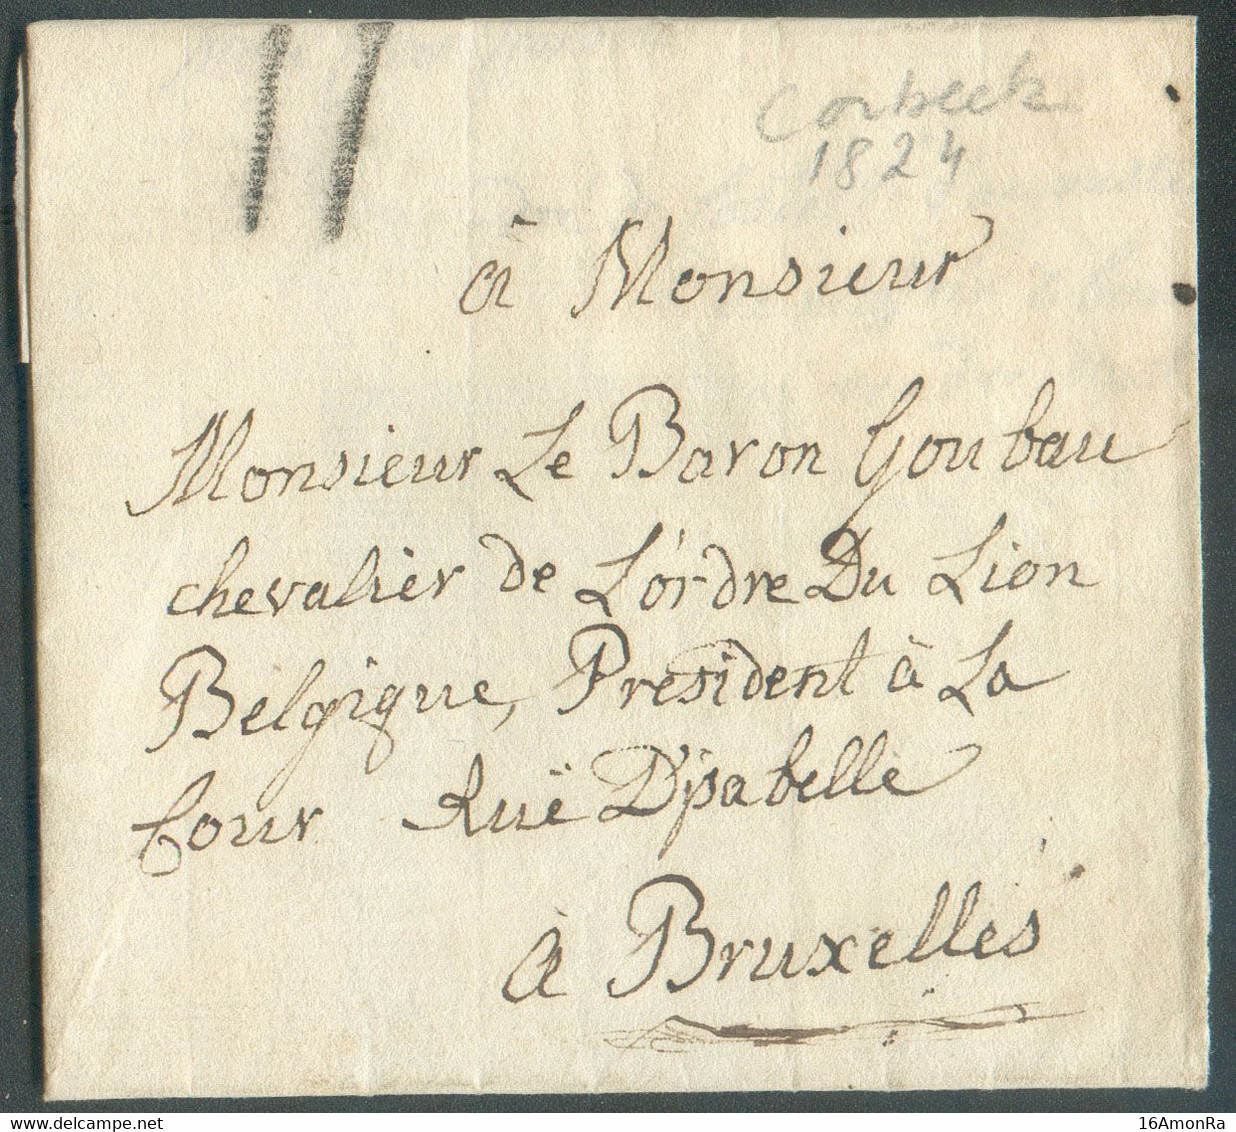 Corbeek
1824
à Monsieur
Monsieur Le Baron Goubau
chevalier de L'ordre Du Lion
Belgique, President à La
Cour Ruë D'ysabelle
à Bruxelles
delcampe.net
16AmonRa